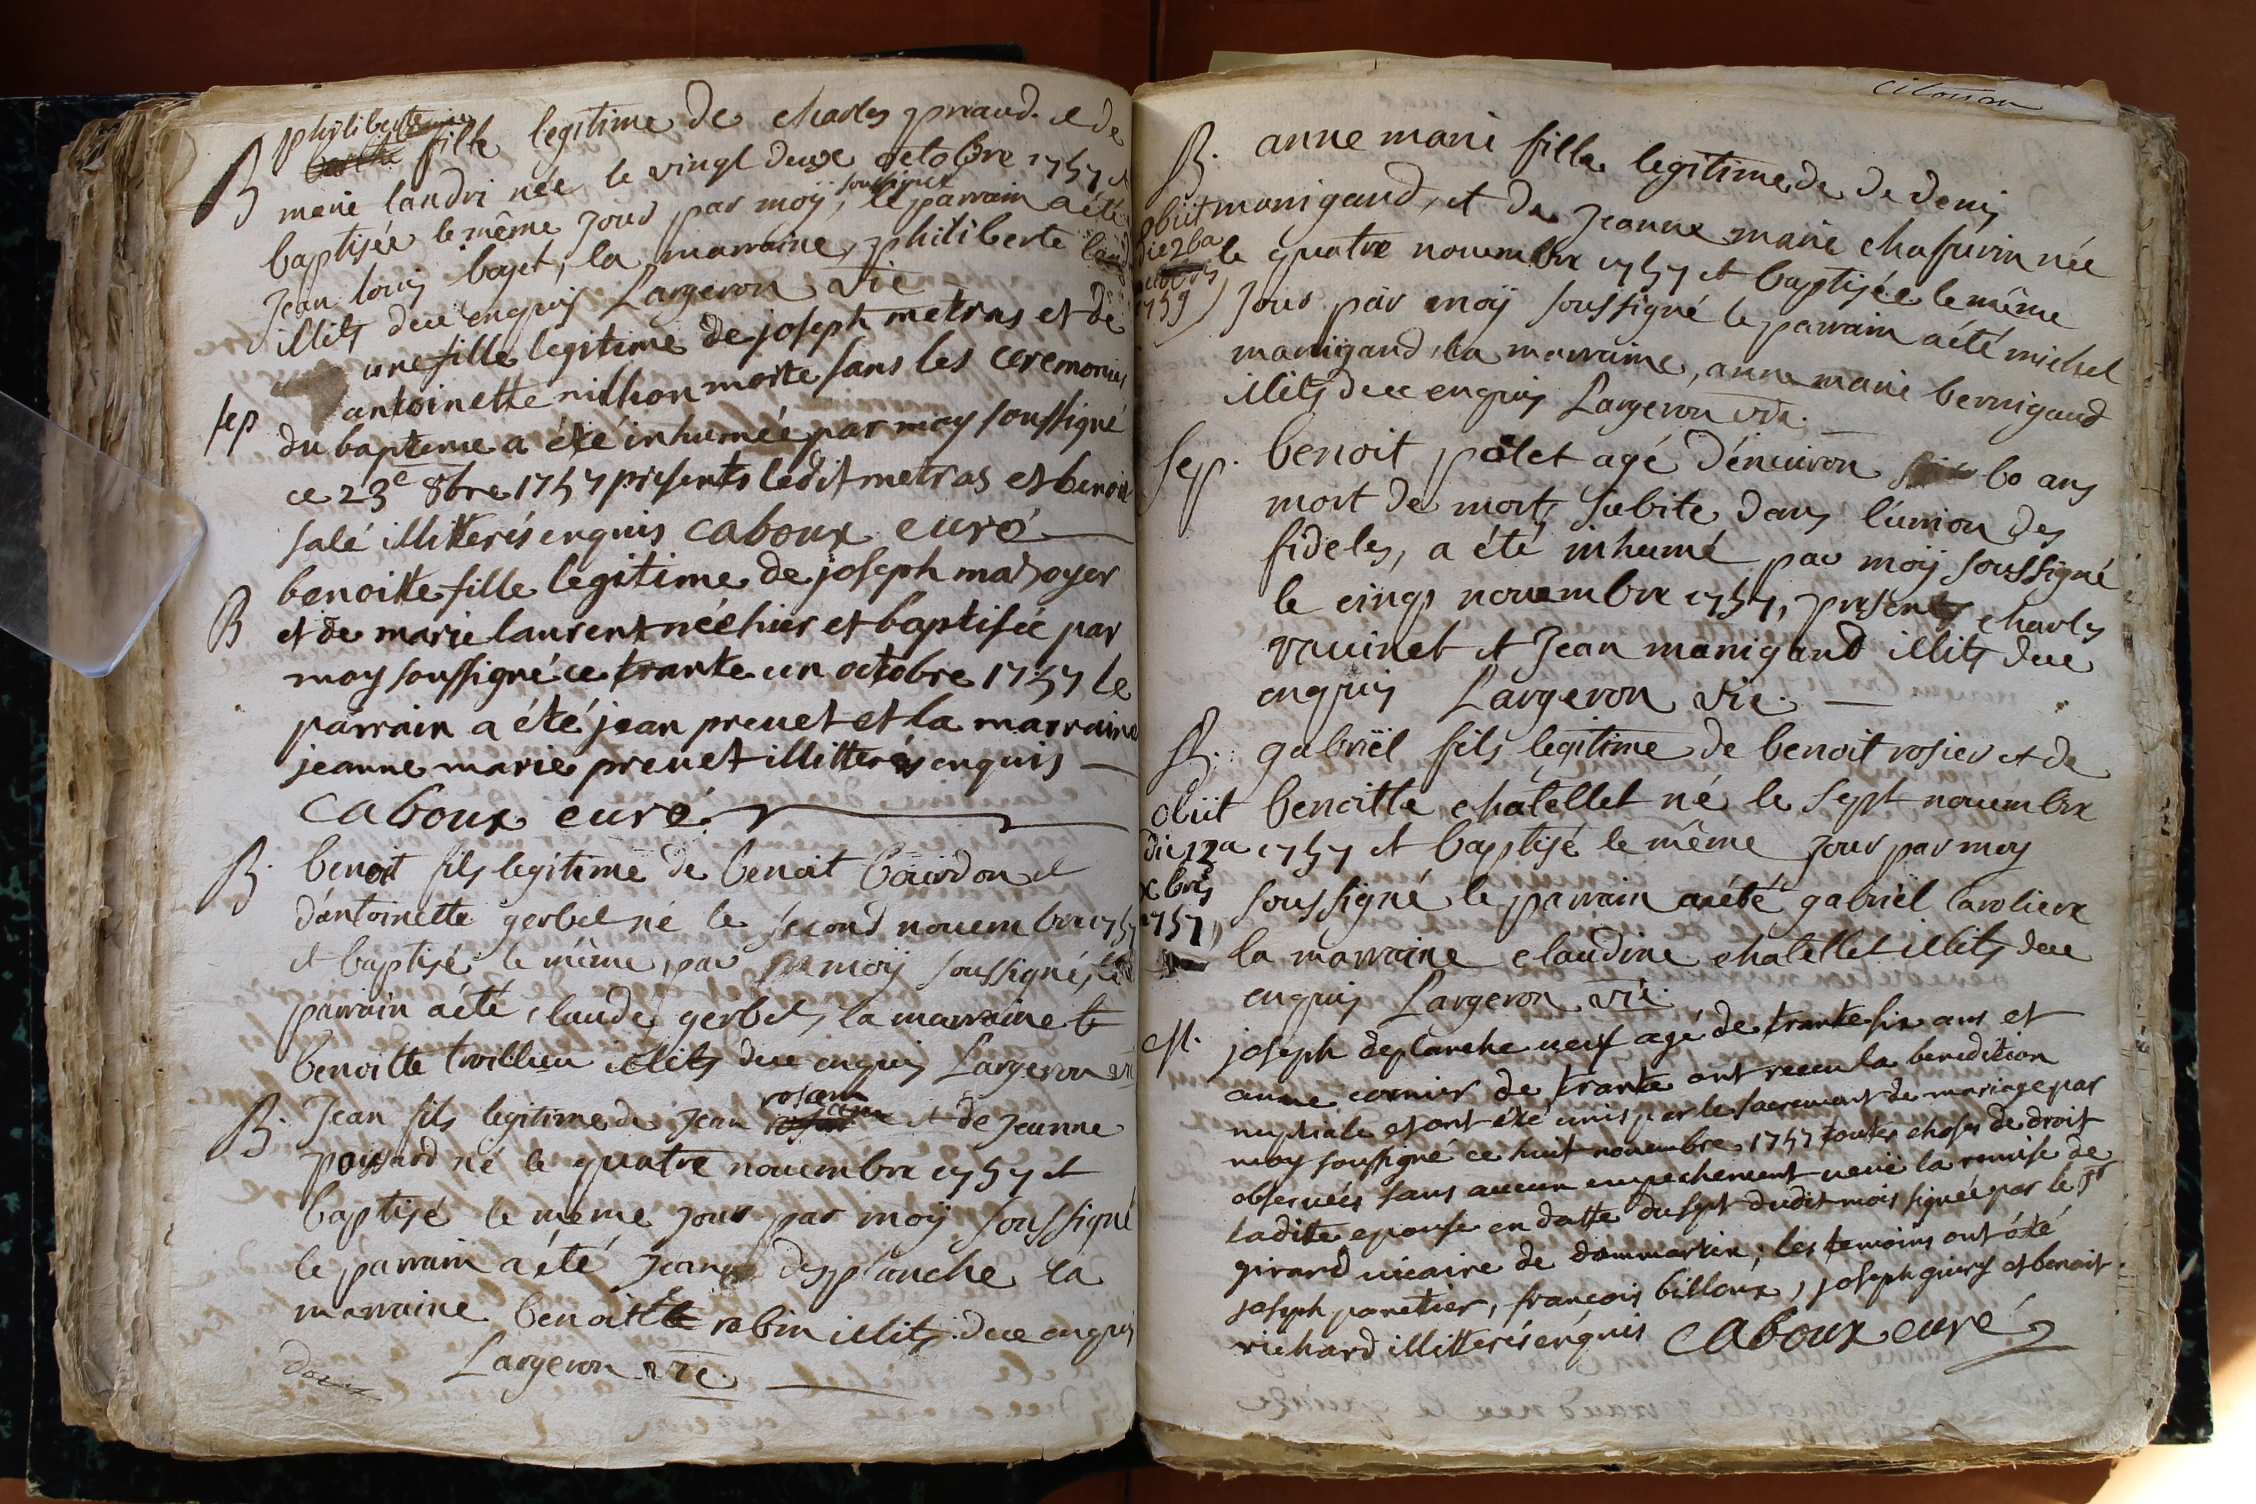 philiberte
B fille legitime de charles priaud et de
marie landri née le vingt deux octobre 1757 et
baptisée le même jour par moÿ soussigné, le parrain a été
Jean louis boyet, la marraine, philiberte
illits duë enquis Largeron vic
une fille legitime de joseph metras et de
antoinette nilhon morte sans les ceremonies
sep du bapteme a été inhumée par moy soussigné
ce 23e 8bre 1757 présents ledit metras et benoit
salé illitterés enquis caboux curé
benoitte fille legitime de joseph mathoyer
B et de marie laurent née hier et baptisée par
moy soussigné ce trante un octobre 1757 le
parrain a été jean prevet et la marraine
jeanne marie prevet illitterés enquis
caboux curé
B. benoit fils legitime de benoit bourdon et
d'antoinette gerbet né le second novembre 1757
et baptisé le même, par moÿ soussigné, le
parrain a été claude gerbet, la marraine
benoitte trouilleu illits duë enquis Largeron vic
rosam
B. Jean fils legitime de Jean et de Jeanne
poissard né le quatre novembre 1757 et
baptisé le meme jour par moÿ soussigné
le parrain a été Jean desplanche la
marraine benoitte robin illits. duë enquis
Largeron vic.
B. anne marie fille legitime de de denis
manigand, et de Jeanne marie chassurin née
le quatre novembre 1757 et baptisée le même
jour par moÿ soussigné le parrain a été michel
manigand, la marraine, anne marie bernigaud
illits duë enquis Largeron vic.
obiit
die 26a
1759
Sep. benoit polet agé d'énuiron 60 ans
mort de mort subite dans l'union des
fideles, a été inhumé par moÿ soussigné
le cinq novembre 1757, presents charles
ravinet et Jean manigand illits duë
enquis Largeron vic.
B. gabriël fils legitime de benoit rosier et de
benoitte chatellet né le sept novembre
1757 et baptisé le même jour par moy
soussigné le parrain a été gabriël laroliere
la marraine claudine chatellet illits duë
enquis Largeron vic.
obiit
die 12a
xbris
1757
M. joseph deplanche veuf agé de trante six ans et
anne cornier de trante ont receu la benediction
nuptiale et ont été unis par le sacrement de mariage par
moy soussigné ce huit novembre 1757 toutes choses de droit
observées sans aucun empechement veüe la remise de
ladite epouse en datte du sept dudit mois signée par le Sr
girard vicaire de dommartin; les temoins ont été
joseph panetier, francois billoux, joseph guiry et benoit
richard illitterés enquis caboux curé